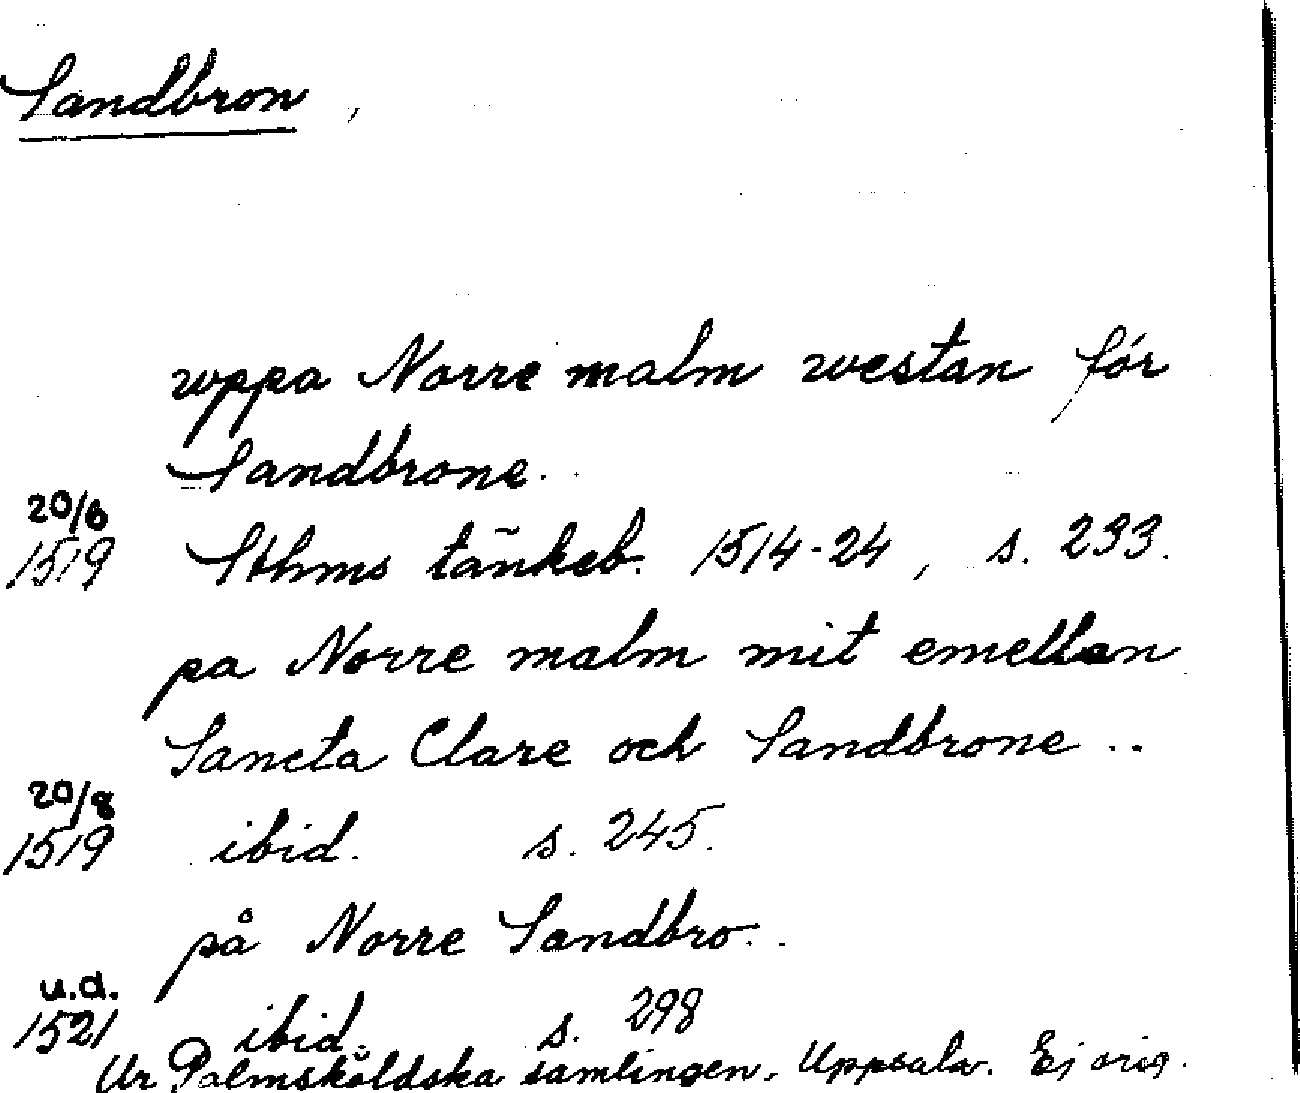 Sandbron,
uppa Norre malm westan för
Sandbrone.
20/6
1519 Sthms tänkeb. 1514-24, s. 233.
pa Norre malm mit emellan
Sancta Clare och Sandbrone ..
20/8
1519 ibid. s. 245.
på Norre Sandbro..
u.d.
1521 ibid. s. 298
Ur Palmsköldska samlingen, Uppsala. Ej orig.